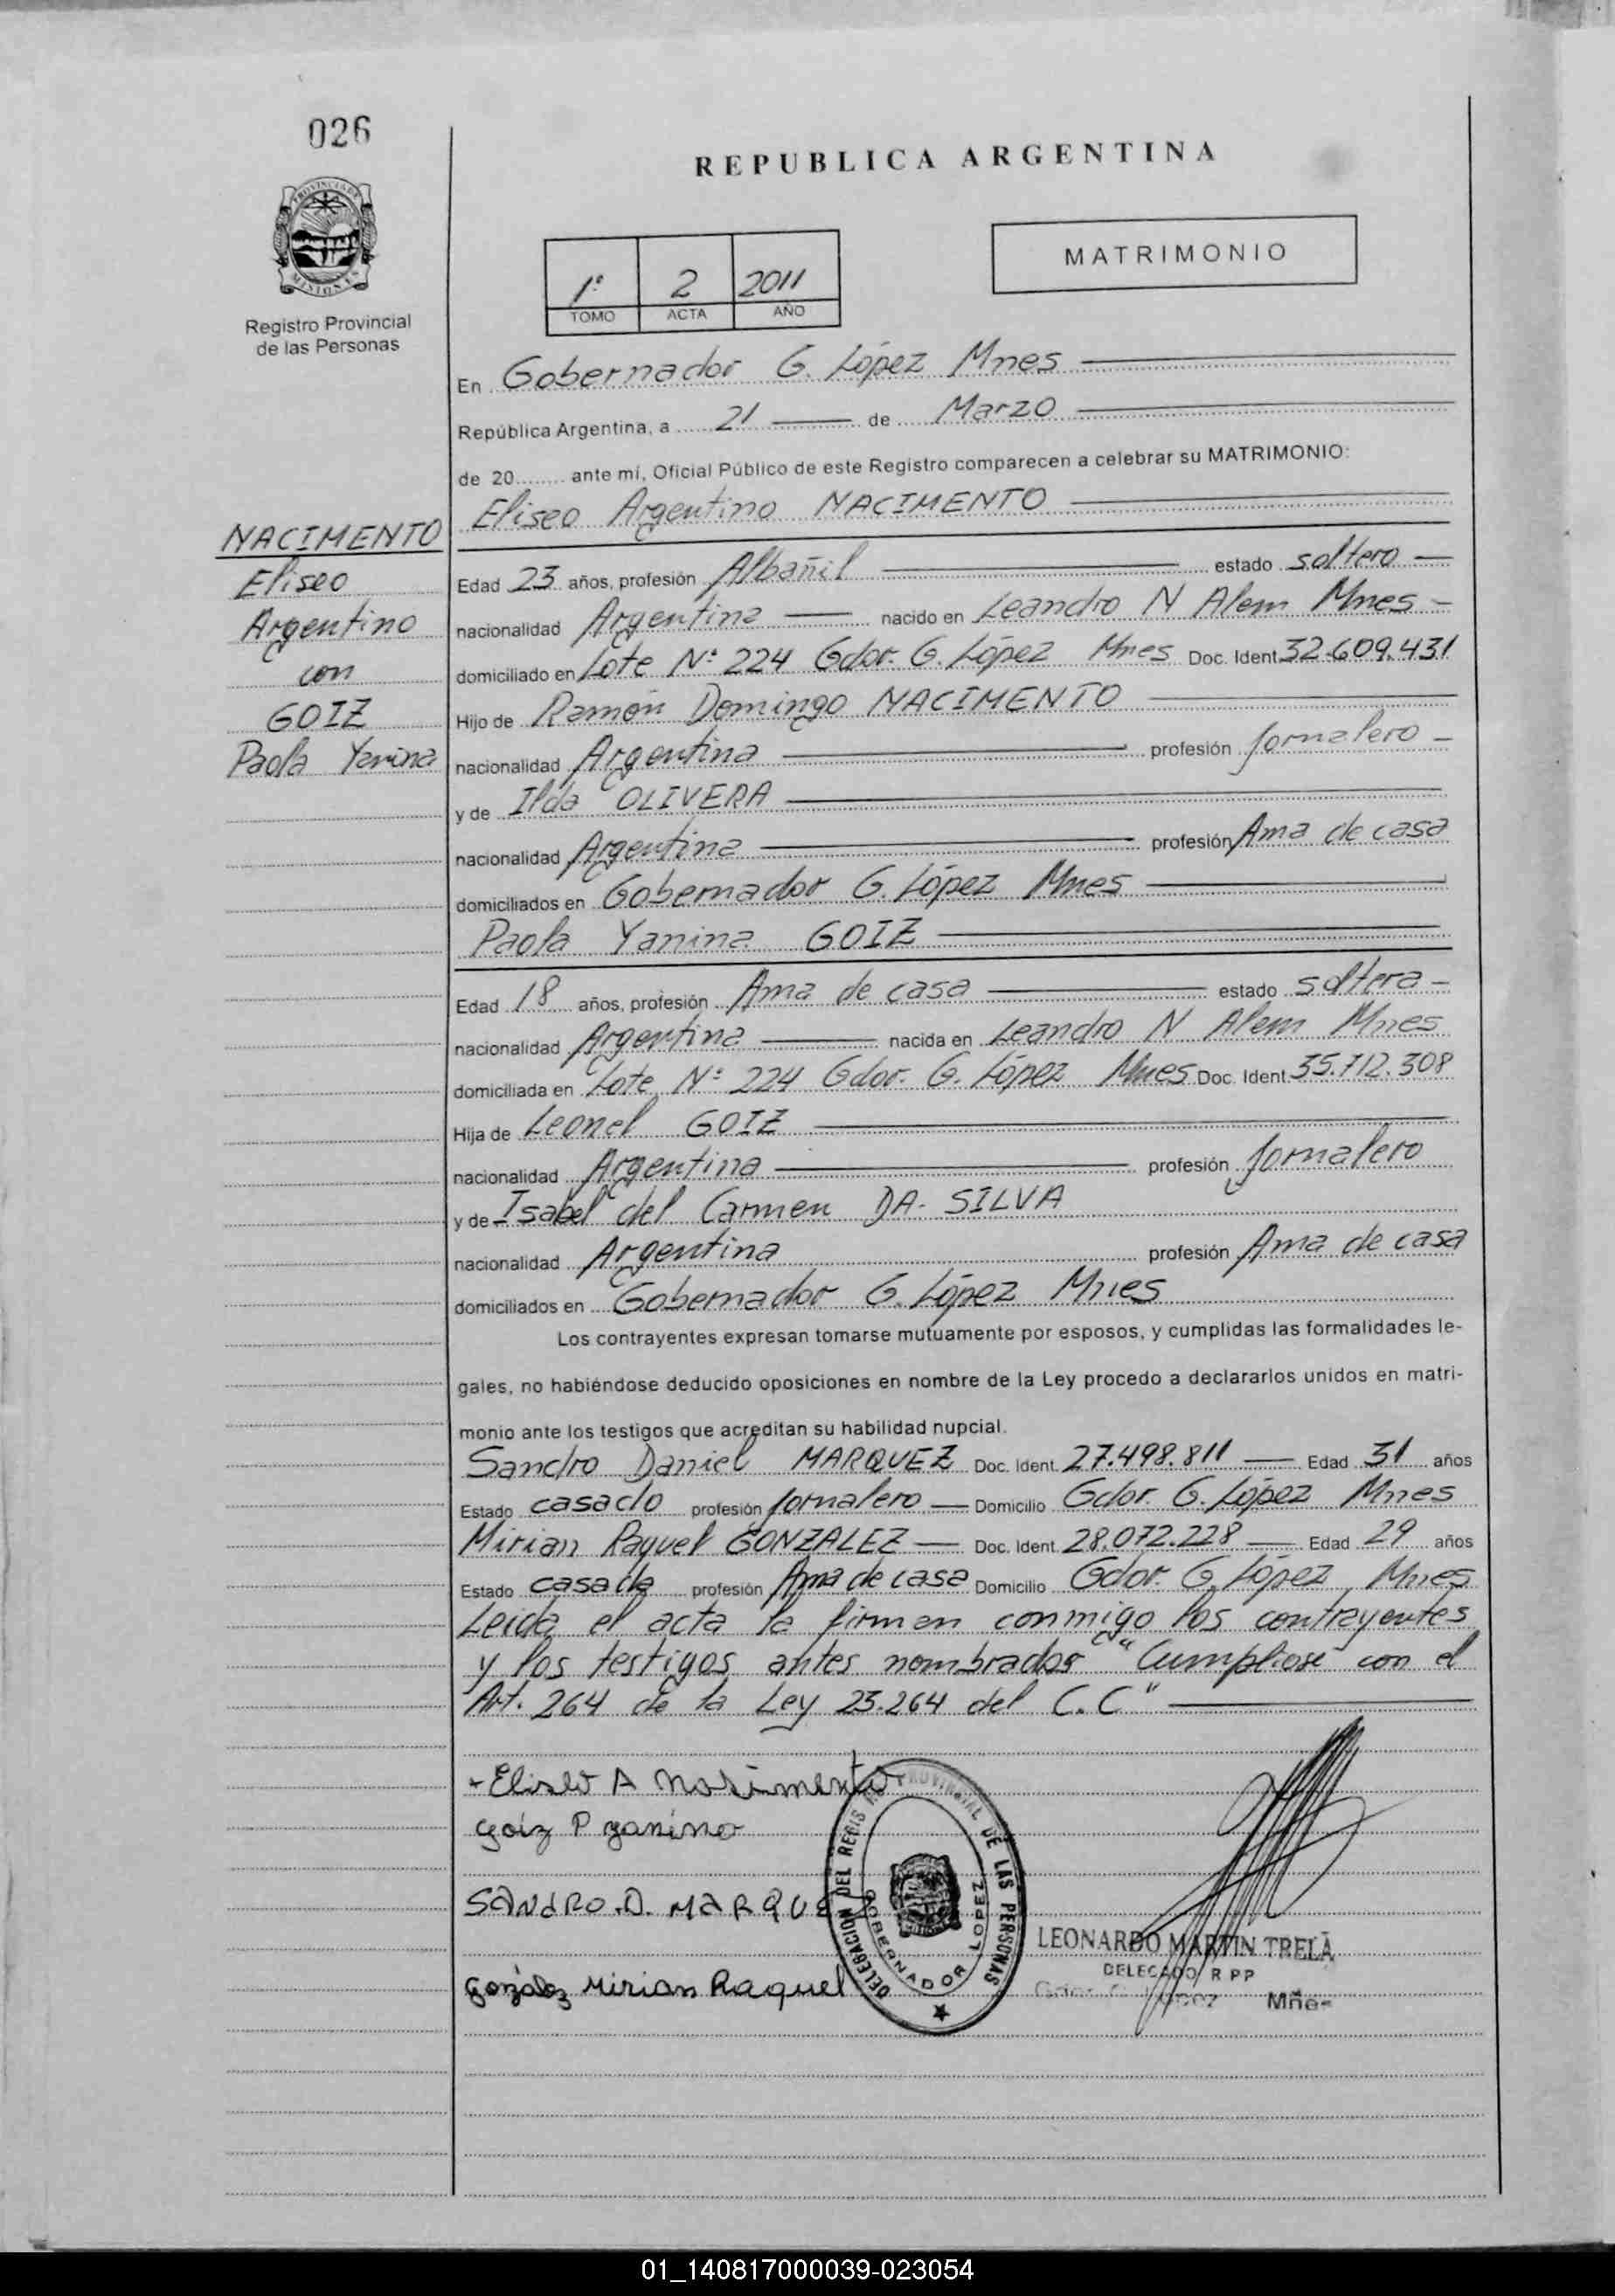 026
REPUBLICA ARGENTINA
PROVINCIA DE
MISIONES
Registro Provincial
de las Personas
1º 2 2011
TOMO ACTA AÑO
MATRIMONIO
En Gobernador G. López Mnes
República Argentina, a 21 de Marzo
de 20........ ante mí, Oficial Público de este Registro comparecen a celebrar su MATRIMONIO:
Eliseo Argentino NACIMENTO
NACIMENTO
Eliseo
Argentino
con
GOIZ
Paola Yanina
Edad 23 años, profesión Albañil estado soltero
nacionalidad Argentina nacido en Leandro N Alem Mnes
domiciliado en Lote Nº 224 Gdor. G. López Mnes Doc. Ident. 32.609.431
Hijo de Ramón Domingo NACIMENTO
nacionalidad Argentina profesión Jornalero
y de Ilda OLIVERA
nacionalidad Argentina profesión Ama de casa
domiciliados en Gobernador G. López Mnes
Paola Yanina GOIZ
Edad 18 años, profesión Ama de casa estado soltera
nacionalidad Argentina nacida en Leandro N Alem Mnes
domiciliada en Lote Nº 224 Gdor. G. López Mnes Doc. Ident. 35.712.308
Hija de Leonel GOIZ
nacionalidad Argentina profesión Jornalero
y de Isabel del Carmen DA-SILVA
nacionalidad Argentina profesión Ama de casa
domiciliados en Gobernador G. López Mnes
Los contrayentes expresan tomarse mutuamente por esposos, y cumplidas las formalidades le-
gales, no habiéndose deducido oposiciones en nombre de la Ley procedo a declararlos unidos en matri-
monio ante los testigos que acreditan su habilidad nupcial.
Sandro Daniel MARQUEZ Doc. Ident. 27.498.811 Edad 31 años
Estado casado profesión Jornalero Domicilio Gdor. G. López Mnes
Mirian Raquel GONZALEZ Doc. Ident. 28.072.228 Edad 29 años
Estado casada profesión Ama de casa Domicilio Gdor. G. López Mnes
Leida el acta la firman conmigo los contrayentes
y los testigos antes nombrados "Cumpliose con el
Art. 264 de la Ley 23.264 del C.C"
Eliseo A Nasimento
Goiz P yanina
SANdRO.D. MARQUEZ
González Mirian Raquel
DELEGACION DEL REGIS PROVINCIAL DE LAS PERSONAS
GOBERNADOR LOPEZ
LEONARDO MARTIN TRELA
DELEGADO R P P
Gdor. G. López Mñes
01_140817000039-023054